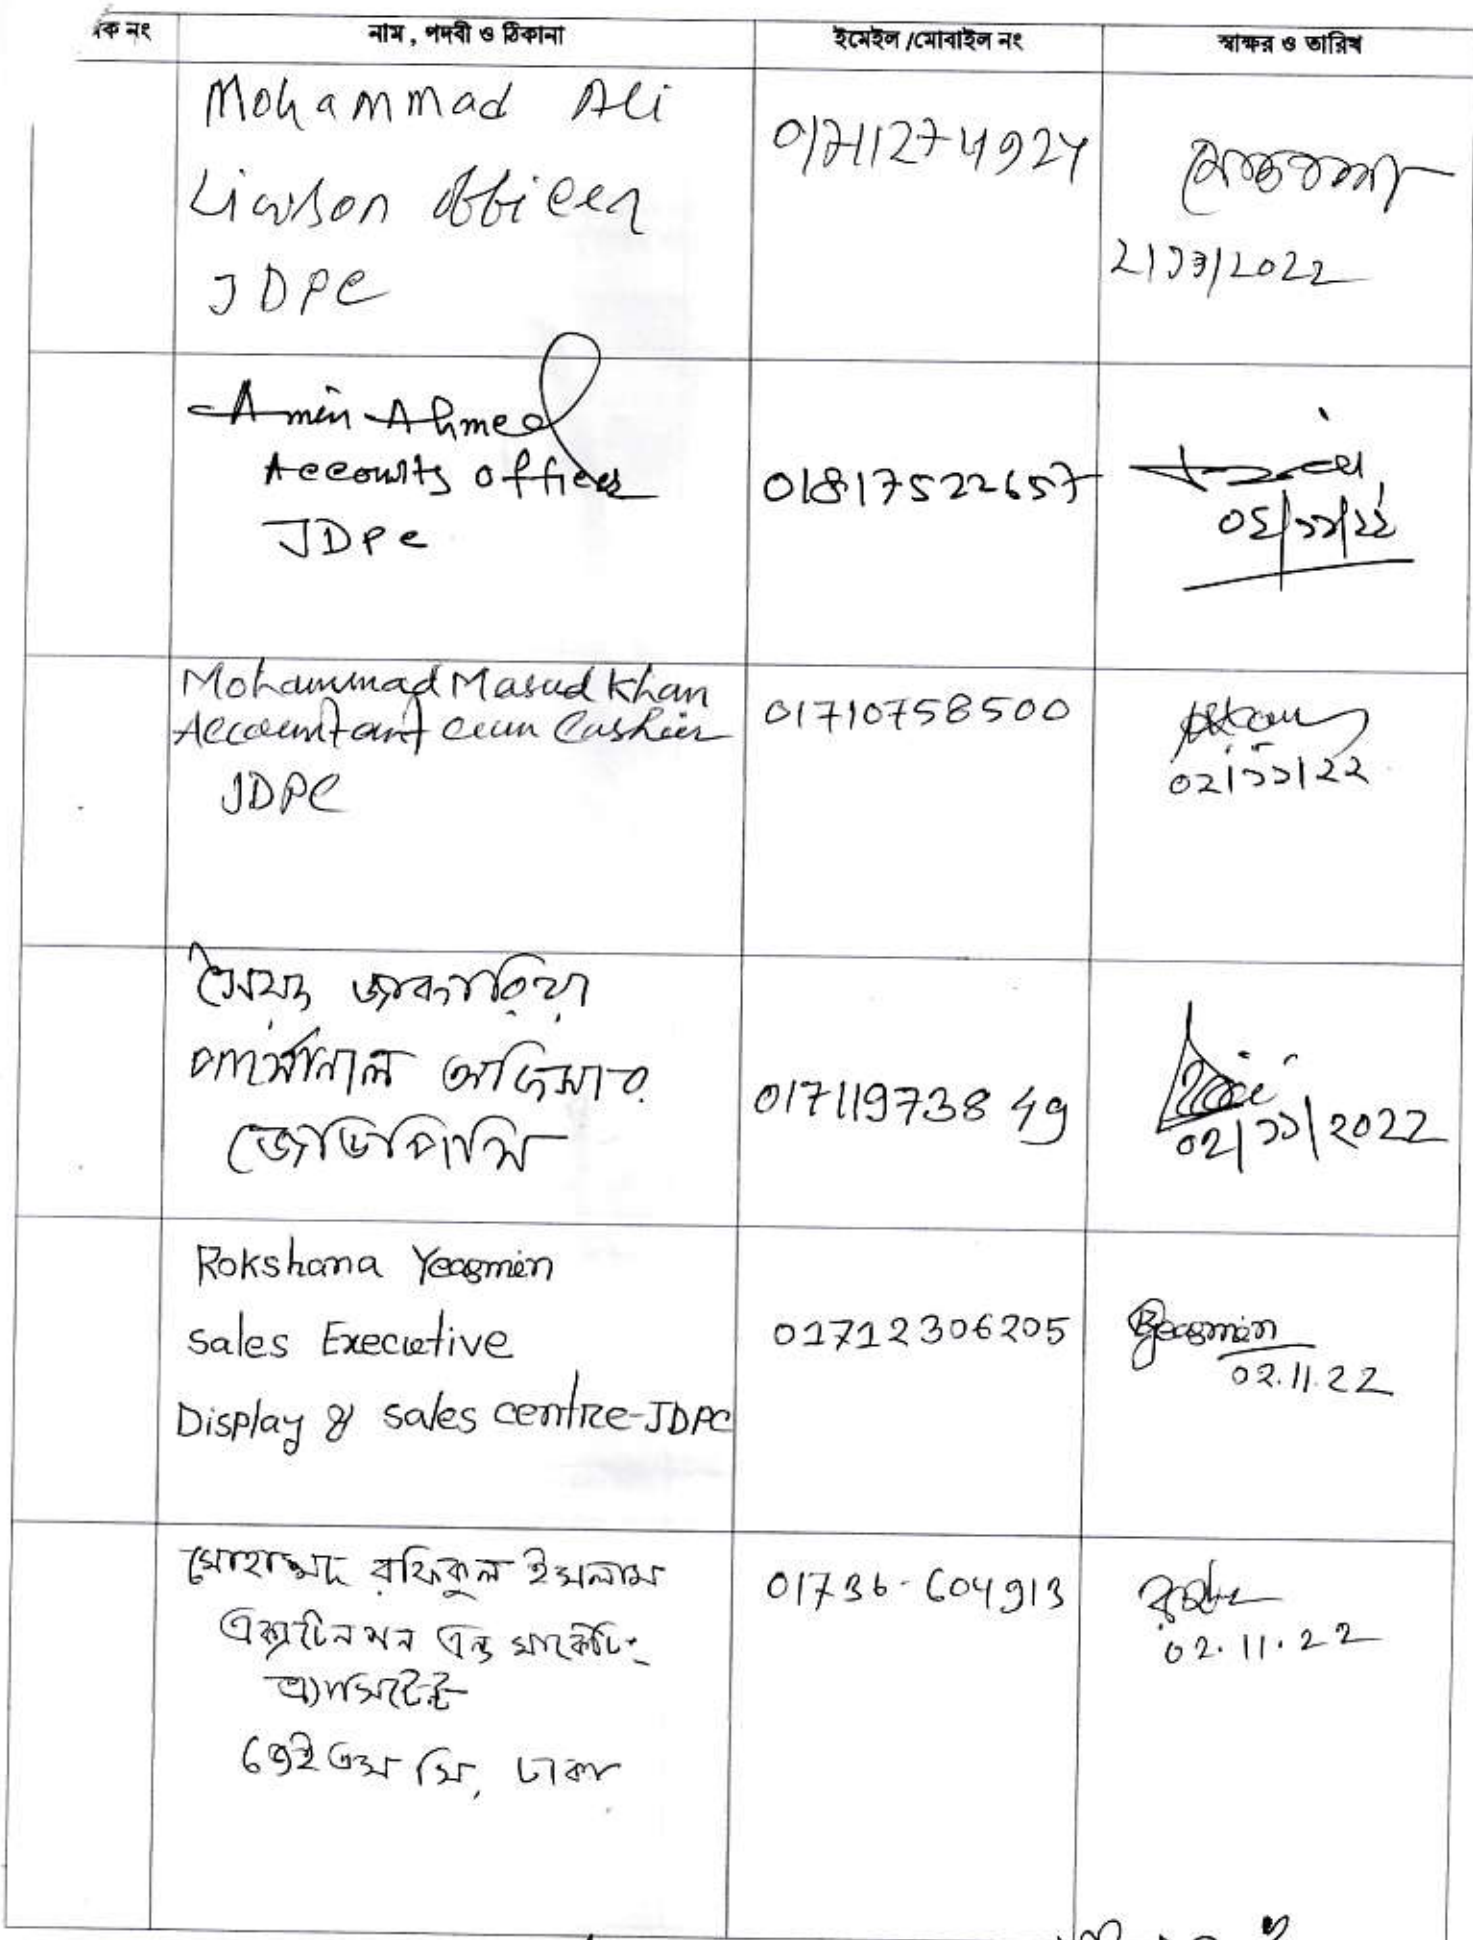 ক নং	নাম, পদবী ও ঠিকানা	ইমেইল/মোবাইল নং	স্বাক্ষর ও তারিখ
Mohammad Ali
Liaison Officer
JDPC
2/11/2022
Amin Ahmed
Accounts Officer
JDPC
01817522657
০২/১১/২২
Mohammad Masud Khan
Accountant cum Cashier
JDPC
01710758500
02/১১/22
সৈয়দ জাকারিয়া
পার্সোনাল অফিসার
জেডিপিসি
01711973849
02/১১/2022
Rokshana Yeasmin
Sales Executive
Display & Sales centre-JDPC
01712306205
Yeasmin
02.11.22
মোহাম্মদ রফিকুল ইসলাম
এক্সটেনশন এন্ড মার্কেটিং
এ্যাসিসটেন্ট
জেইএসসি, ঢাকা
01736-604913
02.11.22